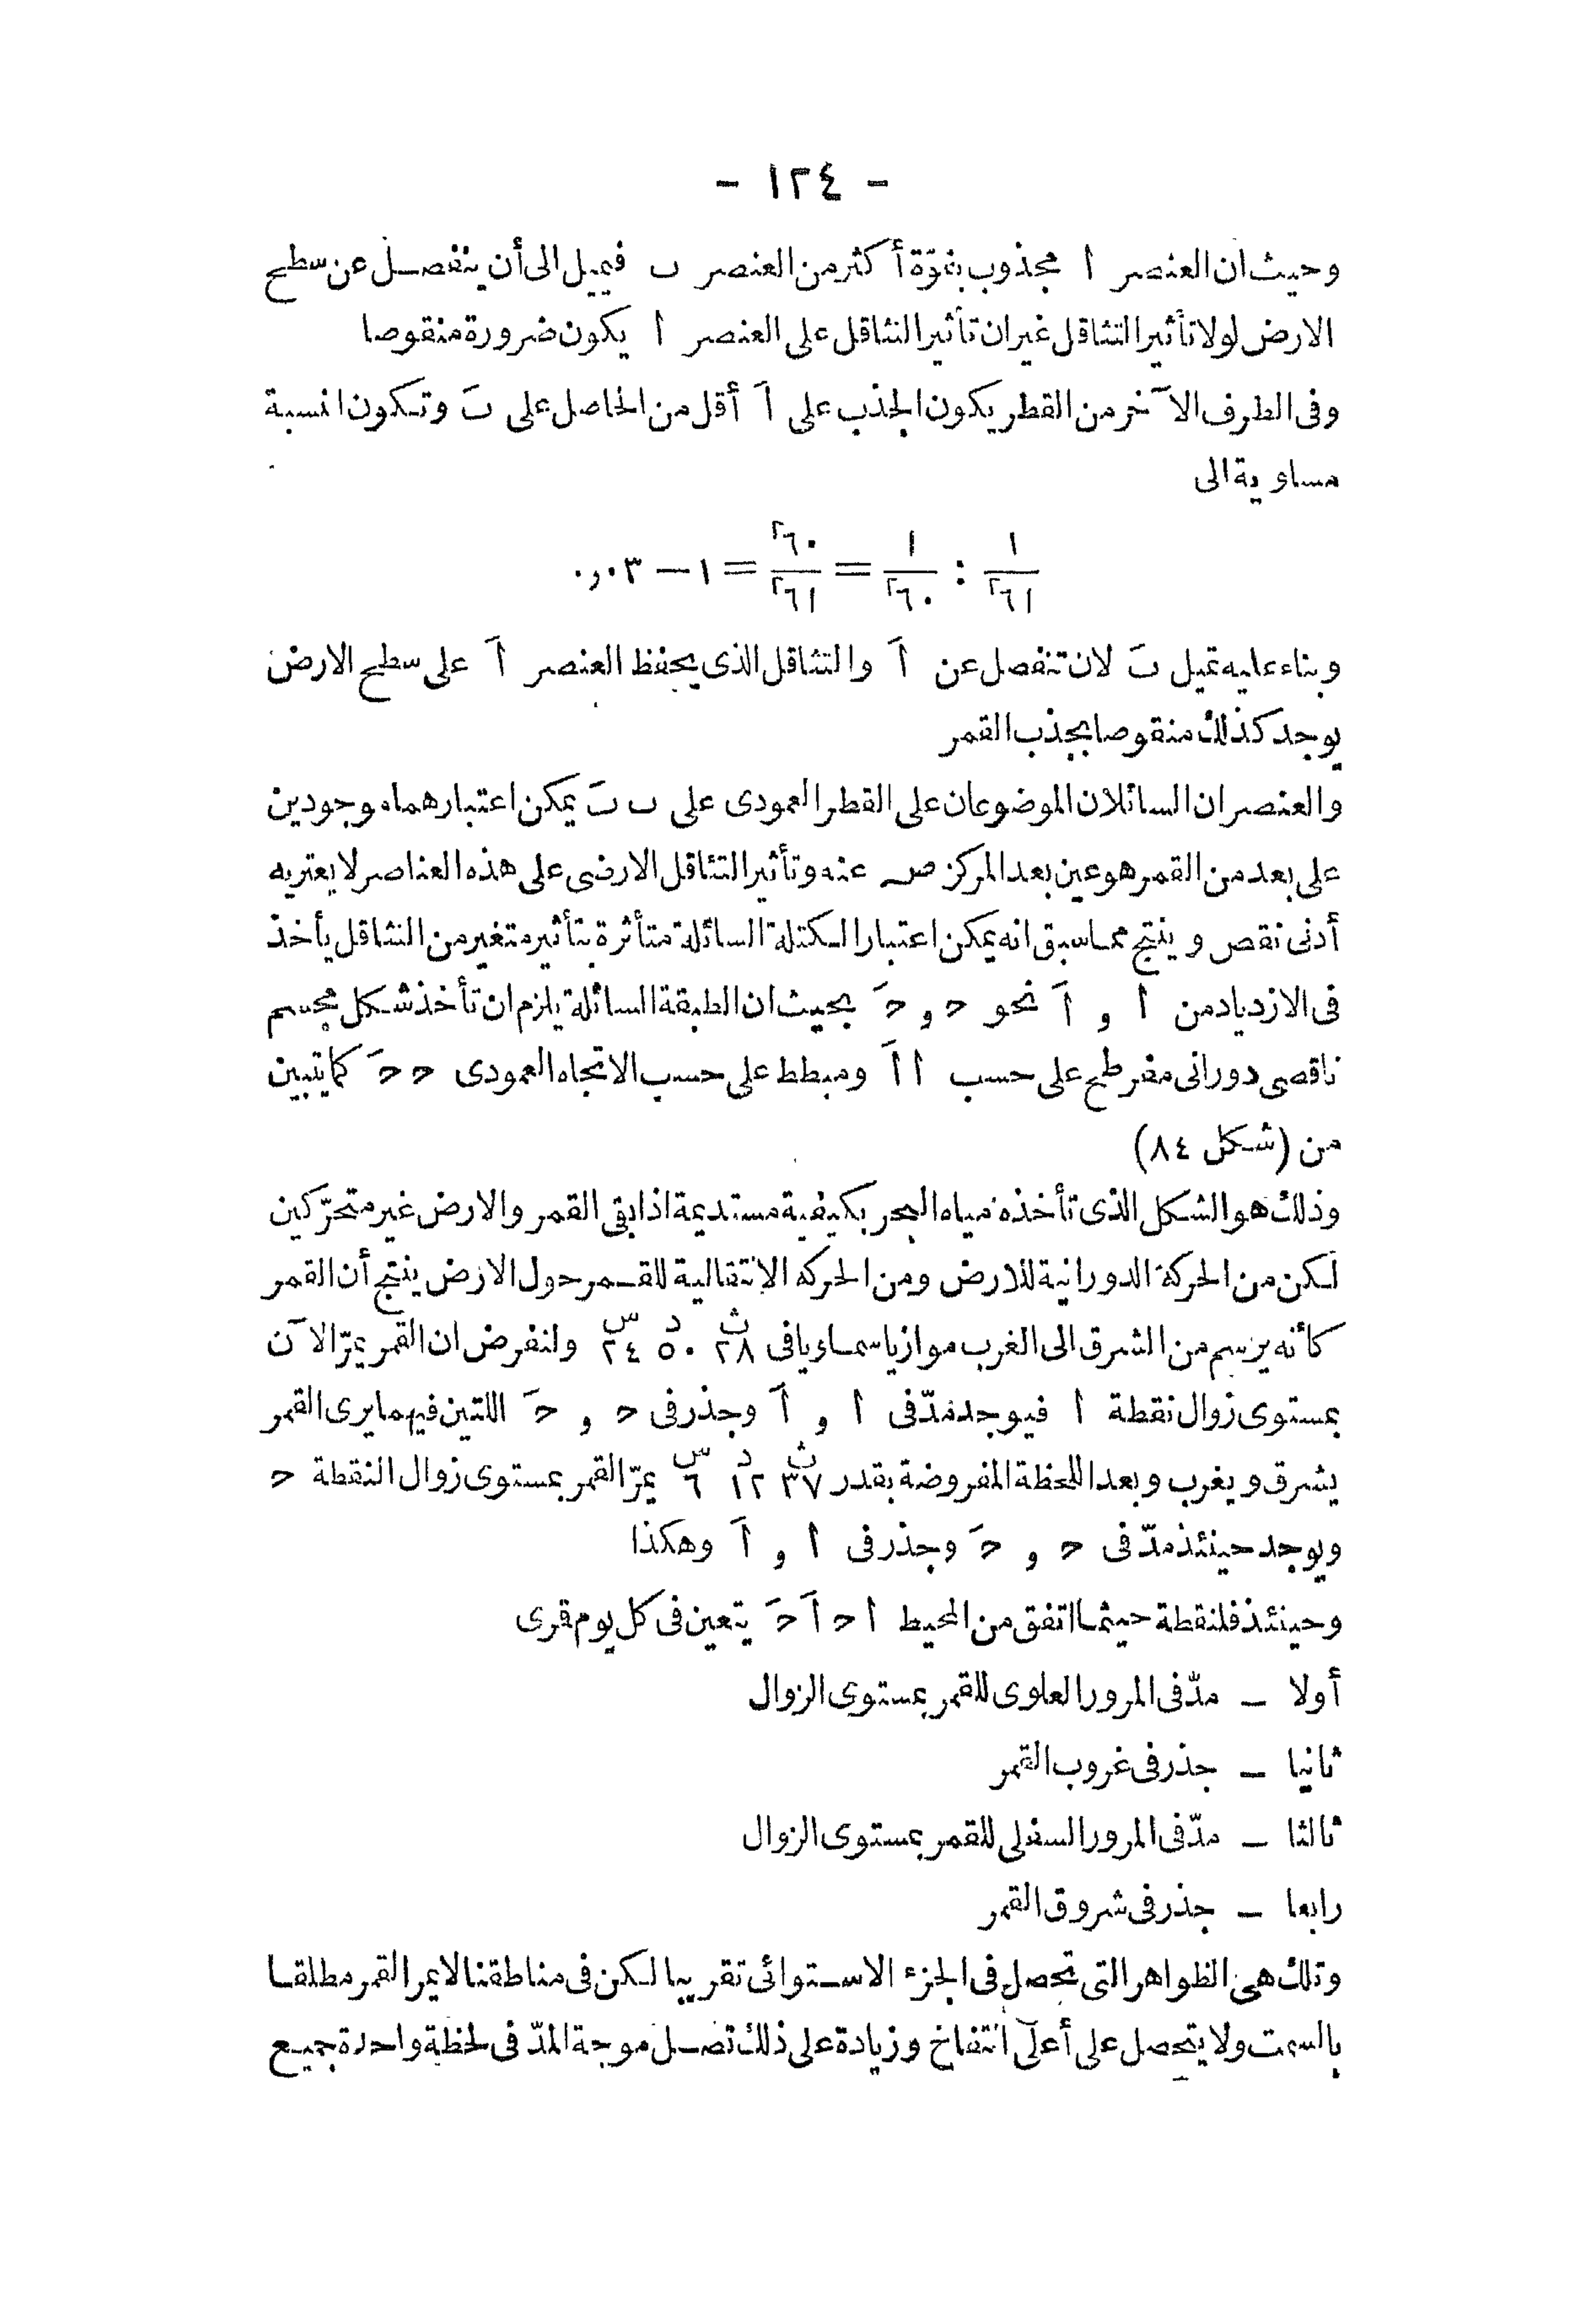 - ١٢٤ -
وحيث ان العنصر ا مجذوب بقوّة أكثر من العنصر ب فيميل الى أن ينفصل عن سطح
الارض لولا تأثير التثاقل غير ان تأثير التثاقل على العنصر ا يكون ضرورة منقوصا
وفى الطرف الآخر من القطر يكون الجذب على اَ أقل من الحاصل على بَ وتكون انسبة
مساوية الى
١/٦١٢ : ١/٦٠٢ = ٦٠٢/٦١٢ = ١ — ٠,٠٣
وبناء عليه تميل بَ لان تنفصل عن اَ والتثاقل الذى يحفظ العنصر اَ على سطح الارض
يوجد كذلك منقوصا بجذب القمر
والعنصران السائلان الموضوعان على القطر العمودى على ب بَ يمكن اعتبارهما موجودين
على بعد من القمر هو عين بعد المركز صه عنه وتأثير التثاقل الارضى على هذه العناصر لا يعتريه
أدنى نقص وينتج مما سبق انه يمكن اعتبار الكتلة السائلة متأثرة بتأثير متغير من التثاقل يأخذ
فى الازدياد من ا و اَ نحو ح و حَ بحيث ان الطبقة السائلة يلزم ان تأخذ شكل مجسم
ناقصى دورانى مفرطح على حسب ا اَ ومبطط على حسب الاتجاه العمودى ح حَ كما يتبين
من (شكل ٨٤)
وذلك هو الشكل الذى تأخذه مياه البحر بكيفية مستديمة اذا بقى القمر والارض غير متحرّكين
لكن من الحركة الدورانية للارض ومن الحركه الانتقالية للقمر حول الارض ينتج أن القمر
كأنه يرسم من الشرق الى الغرب موازيا سماويا فى ٢٨ث ٥٠د ٢٤س ولنفرض ان القمر يمرّ الآن
بمستوى زوال نقطة ا فيوجد مدّ فى ا و اَ وجذر فى ح و حَ اللتين فيهما يرى القمر
يشرق ويغرب وبعد اللحظة المفروضة بقدر ٣٧ث ١٢د ٦س يمرّ القمر بمستوى زوال النقطة ح
ويوجد حينئذ مدّ فى ح و حَ وجذر فى ا و اَ وهكذا
وحينئذ فلنقطة حيثما اتفق من المحيط ا ح اَ حَ يتعين فى كل يوم قرى
أولا — مدّ فى المرور العلوى للقمر بمستوى الزوال
ثانيا — جذر فى غروب القمر
ثالثا — مدّ فى المرور السفلى للقمر بمستوى الزوال
رابعا — جذر فى شروق القمر
وتلك هى الظواهر التى تحصل فى الجزء الاستوائى تقريبا لكن فى مناطقنا لا يمر القمر مطلقا
بالسمت ولا يتحصل على أعلى انتفاخ وزيادة على ذلك تصل موجة المدّ فى لحظة واحدة جميع